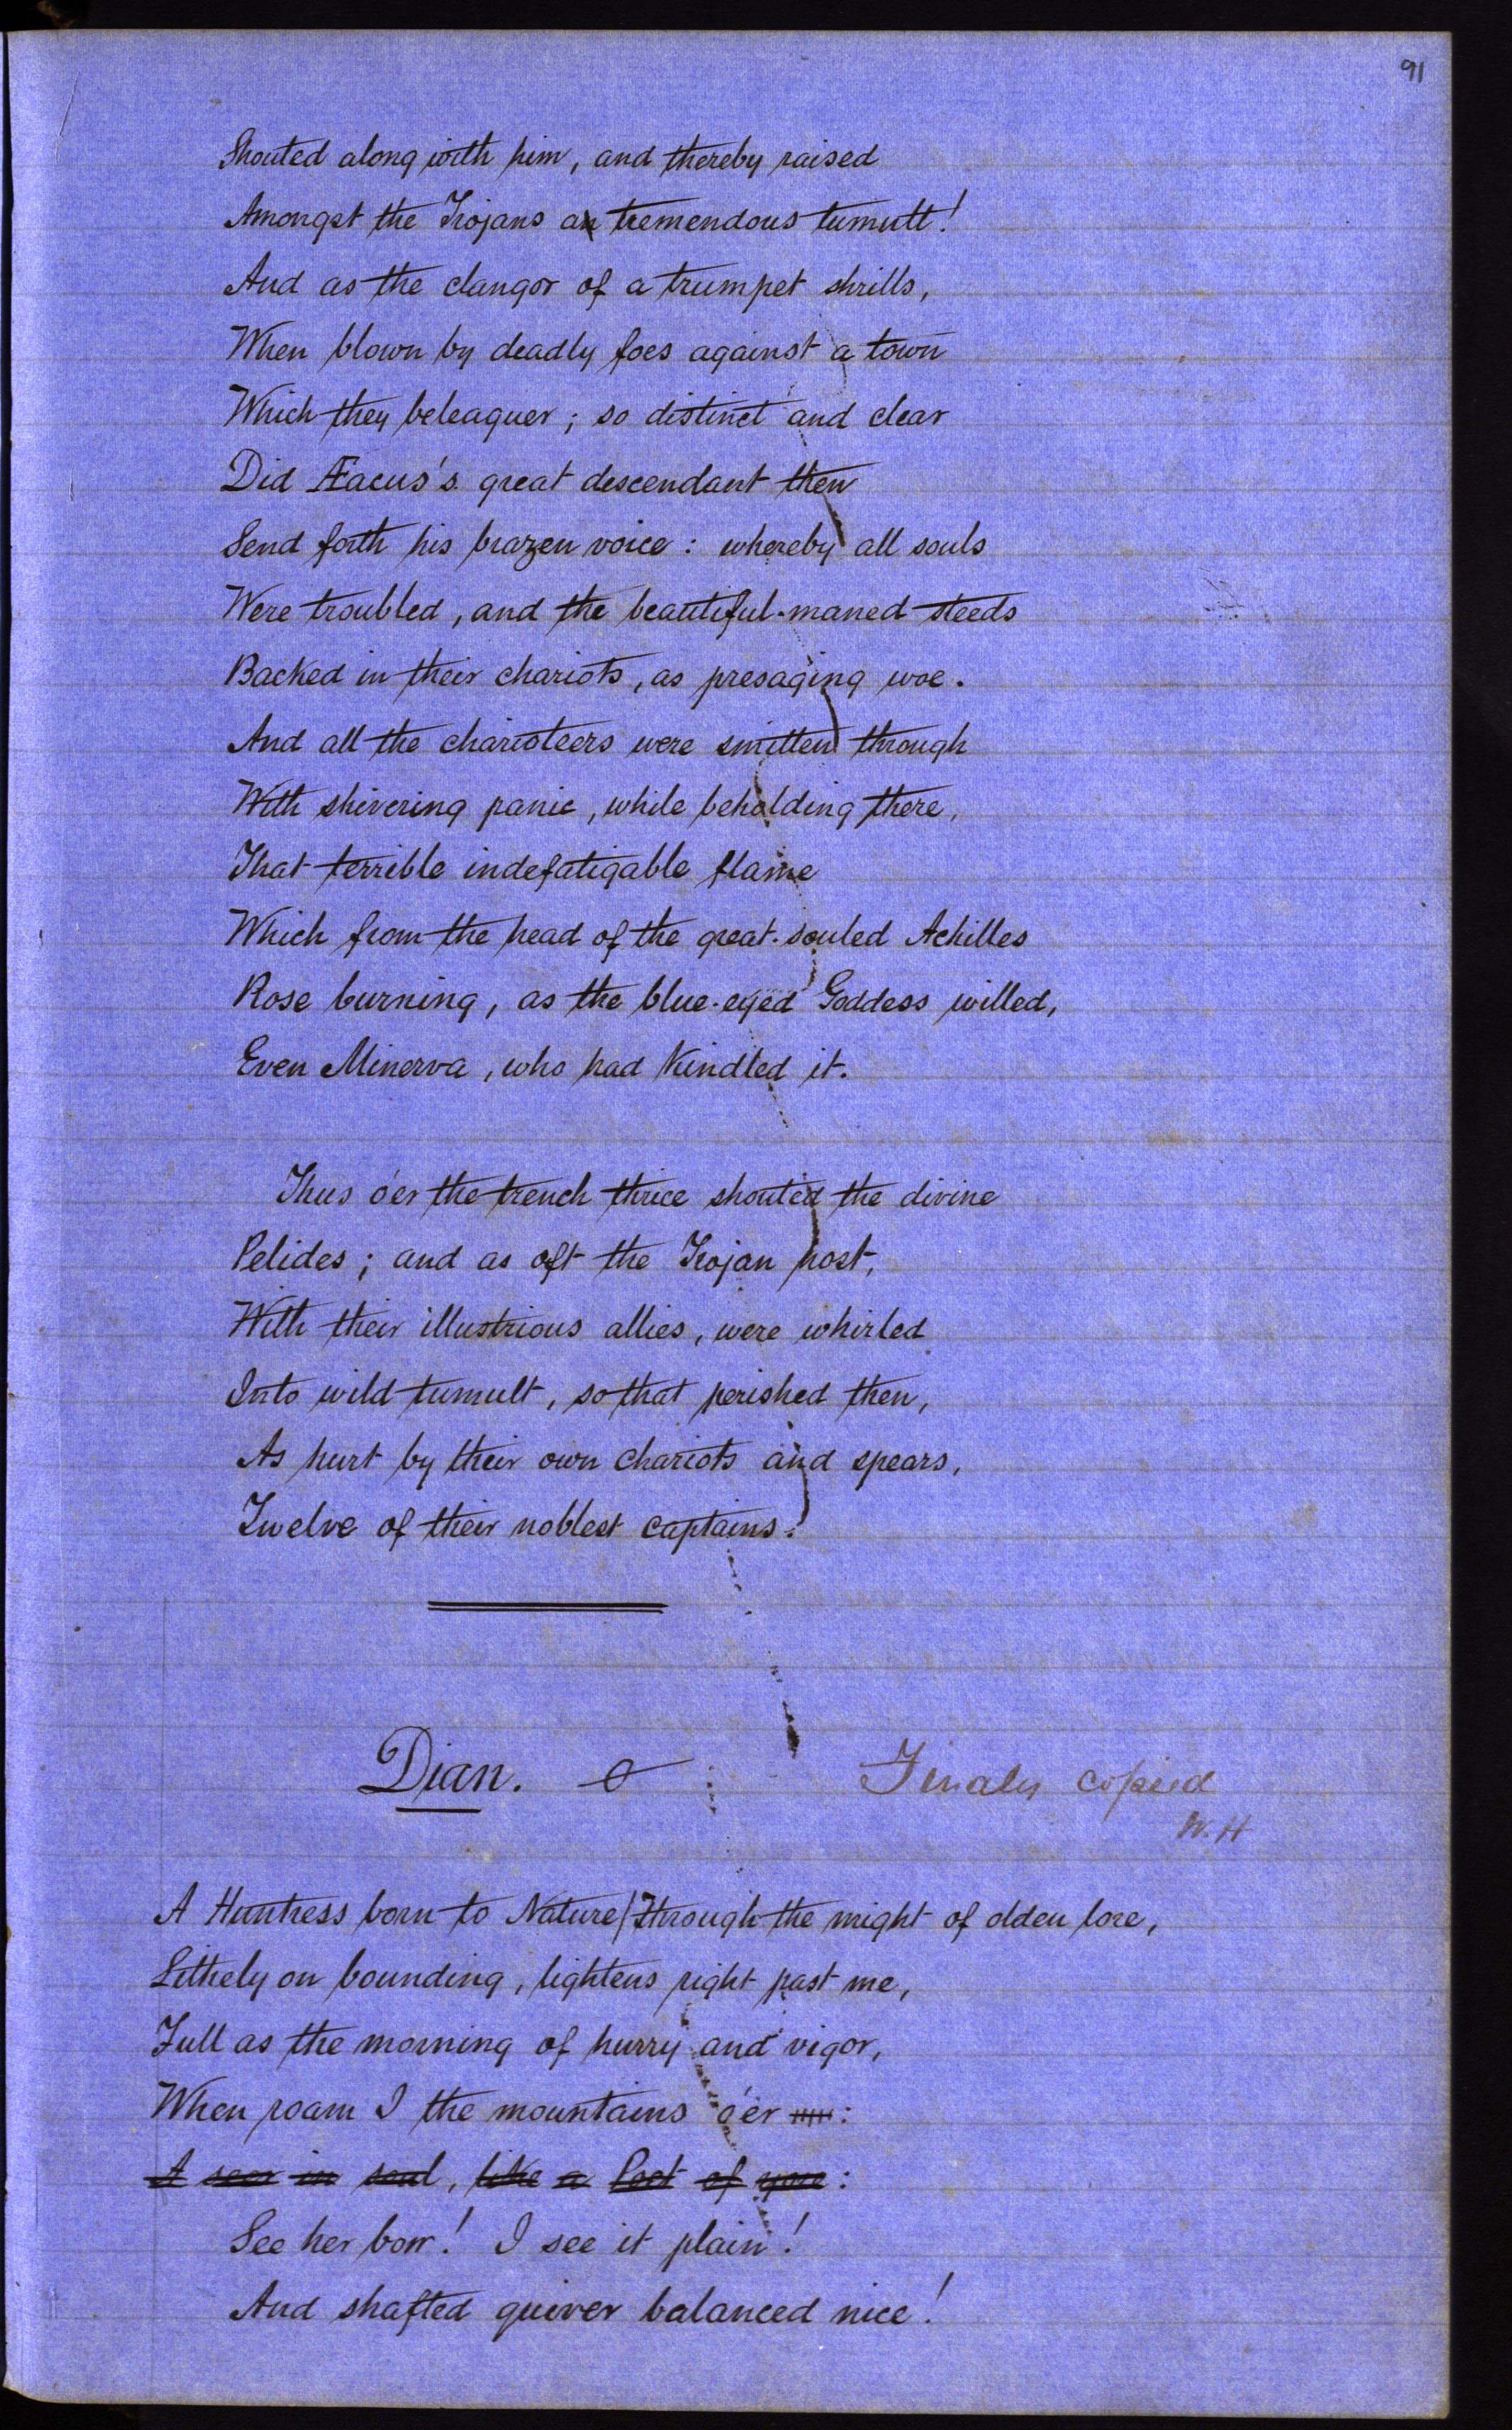 91
Shouted along with him, and thereby raised
Amongst the Trojans a tremendous tumult!
And as the clangor of a trumpet shrills,
When blown by deadly foes against a town
Which they beleaguer; so distinct and clear
Did Æacus's great descendant then
Send forth his brazen voice: whereby all souls
Were troubled, and the beautiful-maned steeds
Backed in their chariots, as presaging woe.
And all the charioteers were smitten through
With shivering panic, while beholding there,
That terrible indefatigable flame
Which from the head of the great-souled Achilles
Rose burning, as the blue-eyed Goddess willed,
Even Minerva, who had kindled it.
Thus o'er the trench thrice shouted the divine
Pelides; and as oft the Trojan host,
With their illustrious allies, were whirled
Into wild tumult, so that perished then,
As hurt by their own chariots and spears,
Twelve of their noblest captains.
Dian.
Finaly copied
W. H
A Huntress born to Nature/Through the might of olden lore,
Lithely on bounding, lightens right past me,
Full as the morning of hurry and vigor,
When roam I the mountains o'er :
A seer in soul, like a Poet of yore:
See her bow! I see it plain!
And shafted quiver balanced nice!